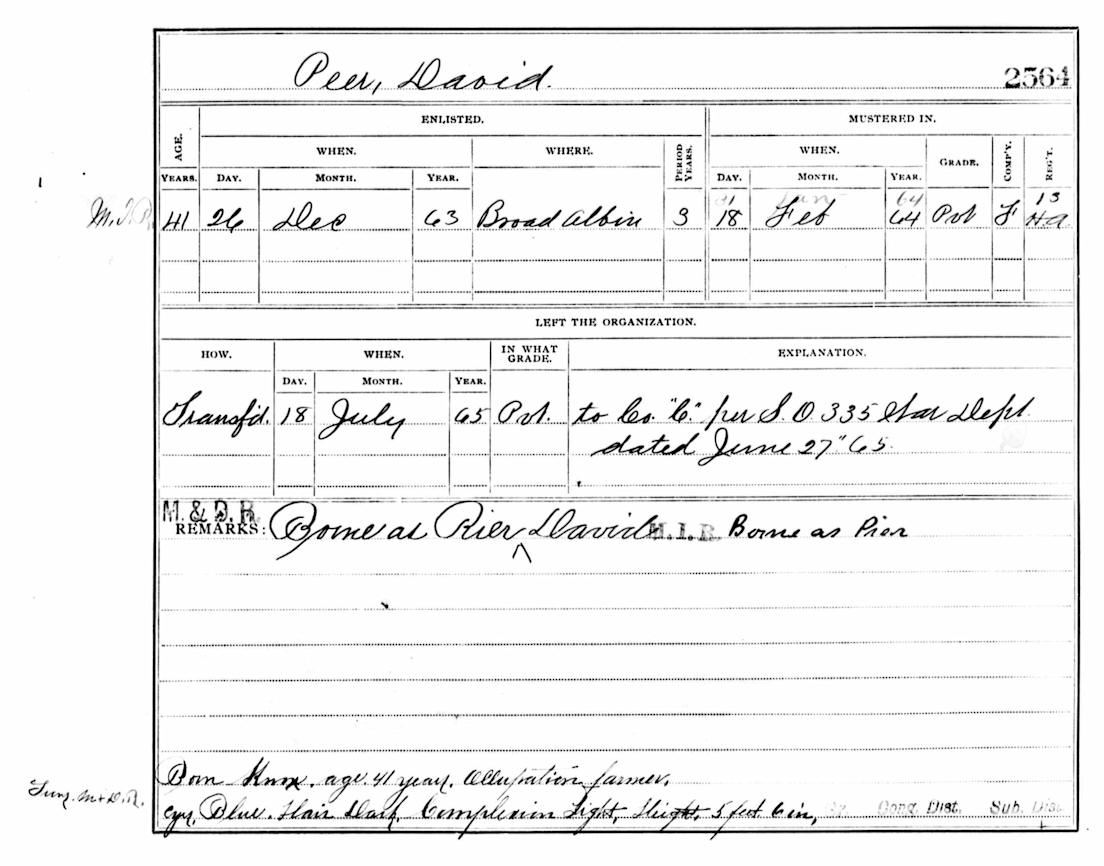 Peer, David. 2564
ENLISTED. MUSTERED IN.
AGE. WHEN. WHERE. PERIOD YEARS. WHEN. GRADE. COMP'Y. REG'T.
YEARS. DAY. MONTH. YEAR. DAY. MONTH. YEAR.
21 Jan 64 13
41 26 Dec 63 Broad Albin 3 18 Feb 64 Pvt F H.a.
LEFT THE ORGANIZATION.
HOW. WHEN. IN WHAT GRADE. EXPLANATION.
DAY. MONTH. YEAR.
Transfd. 18 July 65 Pvt. to Co. "C." per S. O 335 War Dept
dated June 27" 65.
M. & D. R.
REMARKS: Borne as Pier ^ David M. I. R. Borne as Pier
Born Knox. age. 41 years. Occupation farmer.
M & D. R.
eyes, Blue. Hair Dark, Complexion Light, Height, 5 feet 6 in, Cong. Dist. Sub. Dist.